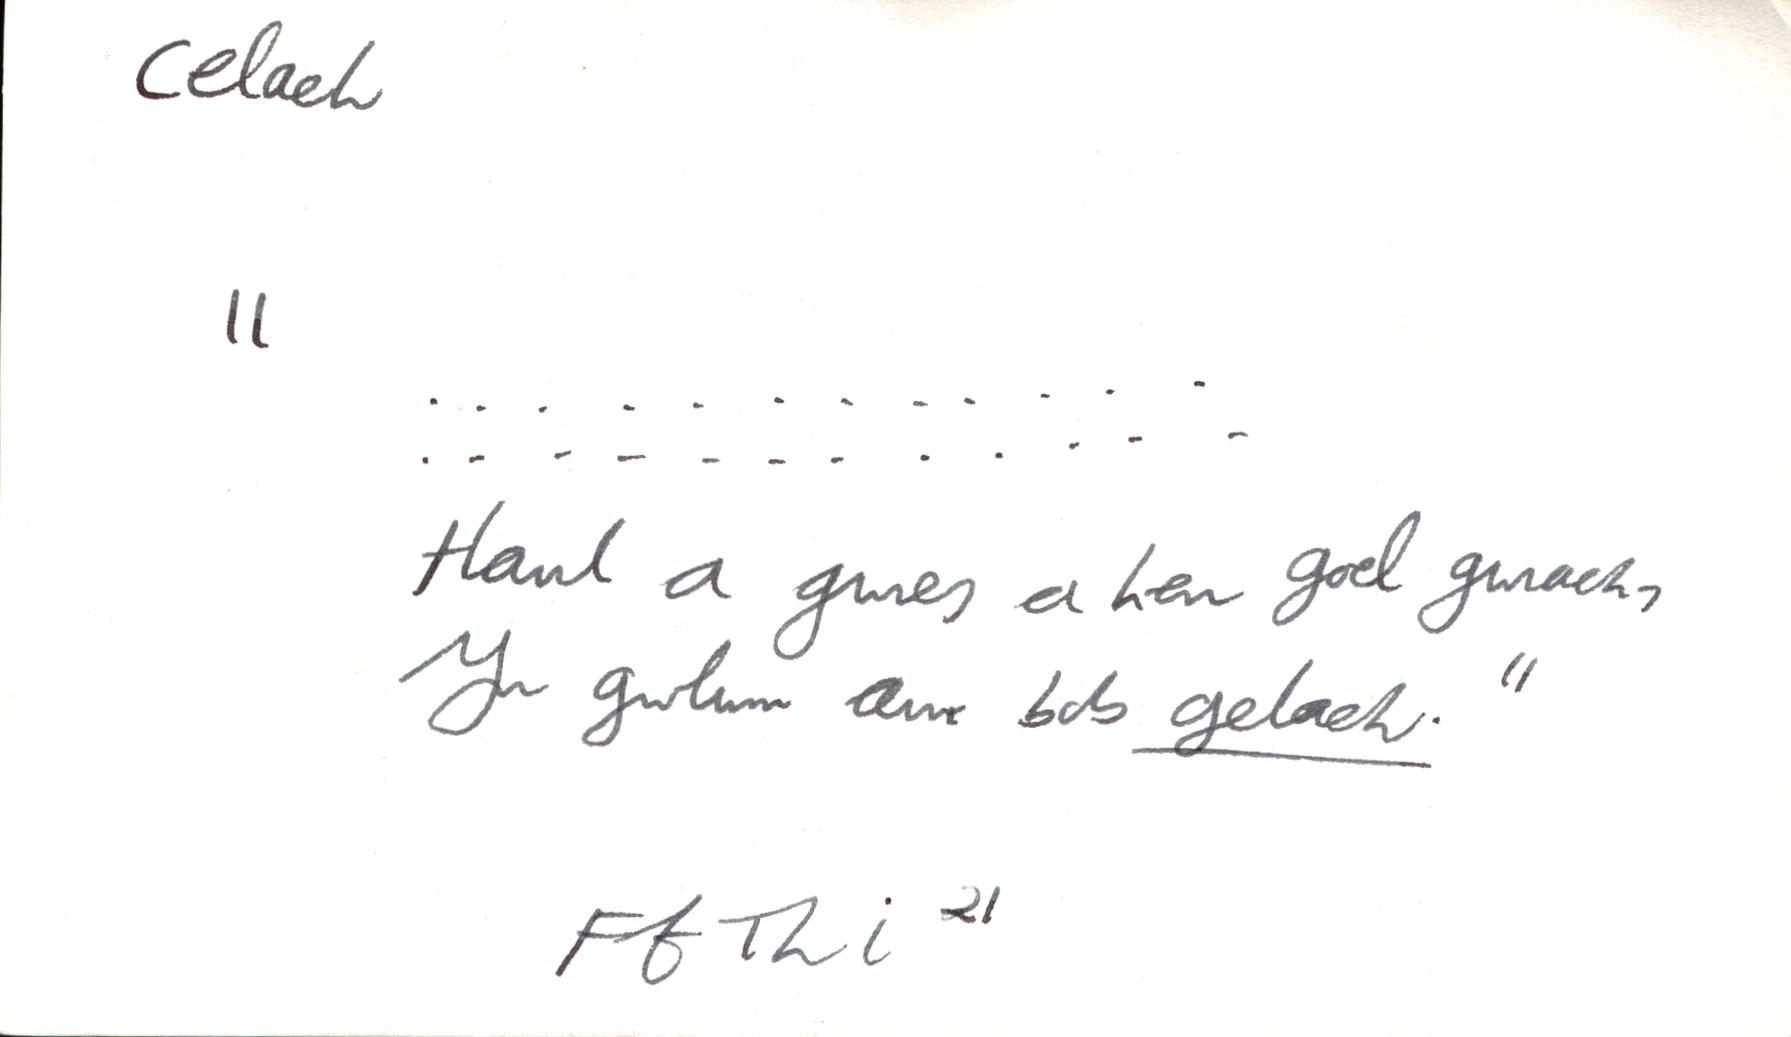 Celach
"
. . . . . . . . . . . .
. . . . . . . . . . . .
Haul a gwres a hen goel gwrach,
Yn gwlwm am bob gelach."
Ff Th i 21